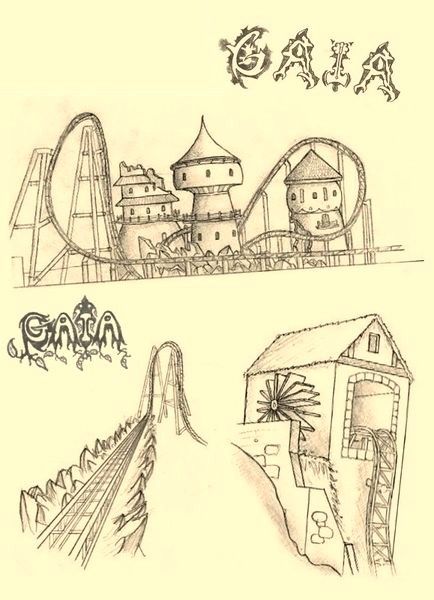 GAIA
GAIA